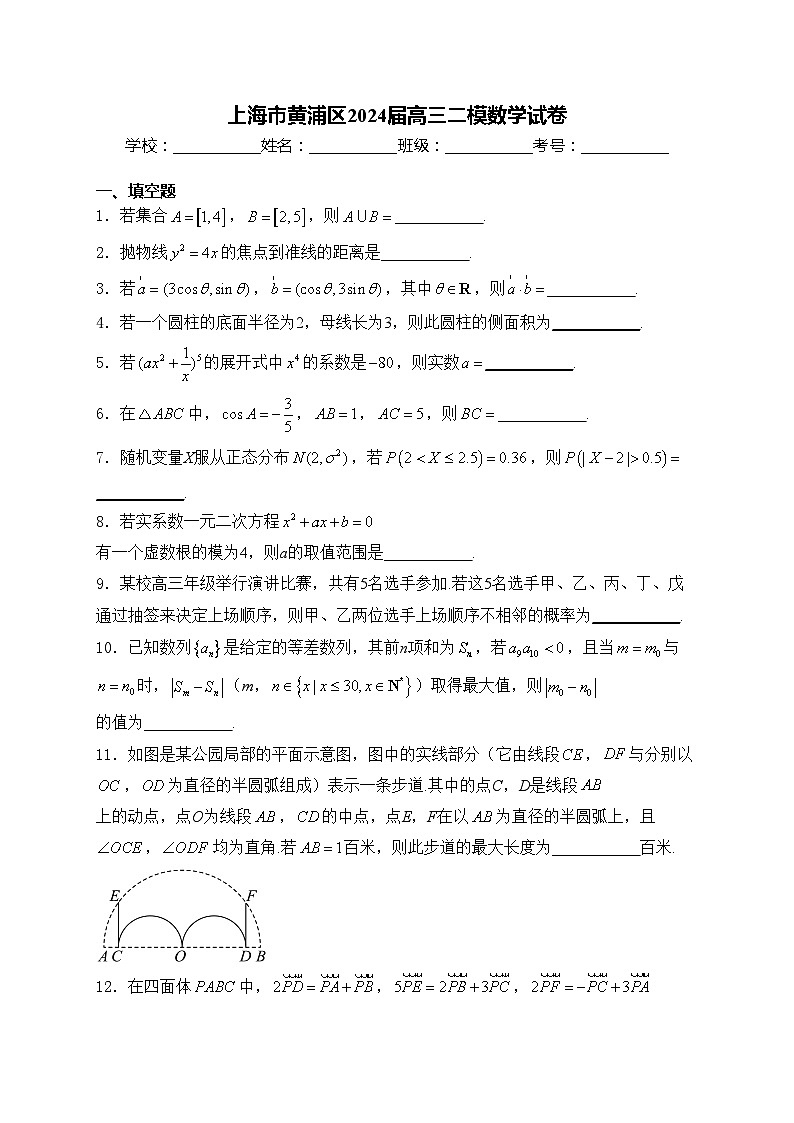 上海市黄浦区2024届高三二模数学试卷
学校：___________姓名：___________班级：___________考号：___________
一、填空题
1．若集合 A=[1,4]，B=[2,5]，则 A∪B=___________.
2．抛物线 y²=4x 的焦点到准线的距离是___________.
3．若 a=(3cosθ,sinθ)，b=(cosθ,3sinθ)，其中 θ∈R，则 a·b=___________.
4．若一个圆柱的底面半径为2，母线长为3，则此圆柱的侧面积为___________.
5．若 (ax²+1/x)⁵ 的展开式中 x⁴ 的系数是 −80，则实数 a=___________.
6．在△ABC 中，cos A=−3/5，AB=1，AC=5，则 BC=___________.
7．随机变量X服从正态分布 N(2,σ²)，若 P(2<X≤2.5)=0.36，则 P(|X−2|>0.5)=
___________.
8．若实系数一元二次方程 x²+ax+b=0
有一个虚数根的模为4，则a的取值范围是___________.
9．某校高三年级举行演讲比赛，共有5名选手参加.若这5名选手甲、乙、丙、丁、戊
通过抽签来决定上场顺序，则甲、乙两位选手上场顺序不相邻的概率为___________.
10．已知数列{aₙ}是给定的等差数列，其前n项和为 Sₙ，若 a₉a₁₀<0，且当 m=m₀ 与
n=n₀ 时，|Sₘ−Sₙ|（m，n∈{x|x≤30,x∈N*}）取得最大值，则 |m₀−n₀|
的值为___________.
11．如图是某公园局部的平面示意图，图中的实线部分（它由线段 CE，DF 与分别以
OC，OD 为直径的半圆弧组成）表示一条步道.其中的点C，D是线段 AB
上的动点，点O为线段 AB，CD 的中点，点E，F在以 AB 为直径的半圆弧上，且
∠OCE，∠ODF 均为直角.若 AB=1百米，则此步道的最大长度为___________百米.
E F
A C O D B
12．在四面体 PABC 中，2PD=PA+PB，5PE=2PB+3PC，2PF=−PC+3PA